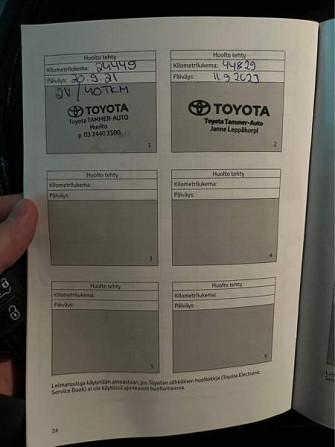 Huolto tehty
Kilometrilukema: 24449
Päiväys: 20.9.21
2V / 40TKM
TOYOTA
Toyota TAMMER-AUTO
Huolto
p. 03 2440 3500
1
Huolto tehty
Kilometrilukema: 44829
Päiväys: 11.9.2023
TOYOTA
Toyota Tammer-Auto
Janne Leppäkorpi
2
Huolto tehty
Kilometrilukema:
Päiväys:
3
Huolto tehty
Kilometrilukema:
Päiväys:
4
Huolto tehty
Kilometrilukema:
Päiväys:
5
Huolto tehty
Kilometrilukema:
Päiväys:
6
Leimaruutuja käytetään ainoastaan, jos Toyotan sähköinen huoltokirja (Toyota Electronic
Service Book) ei ole käytössä ajoneuvon huoltomaassa.
24